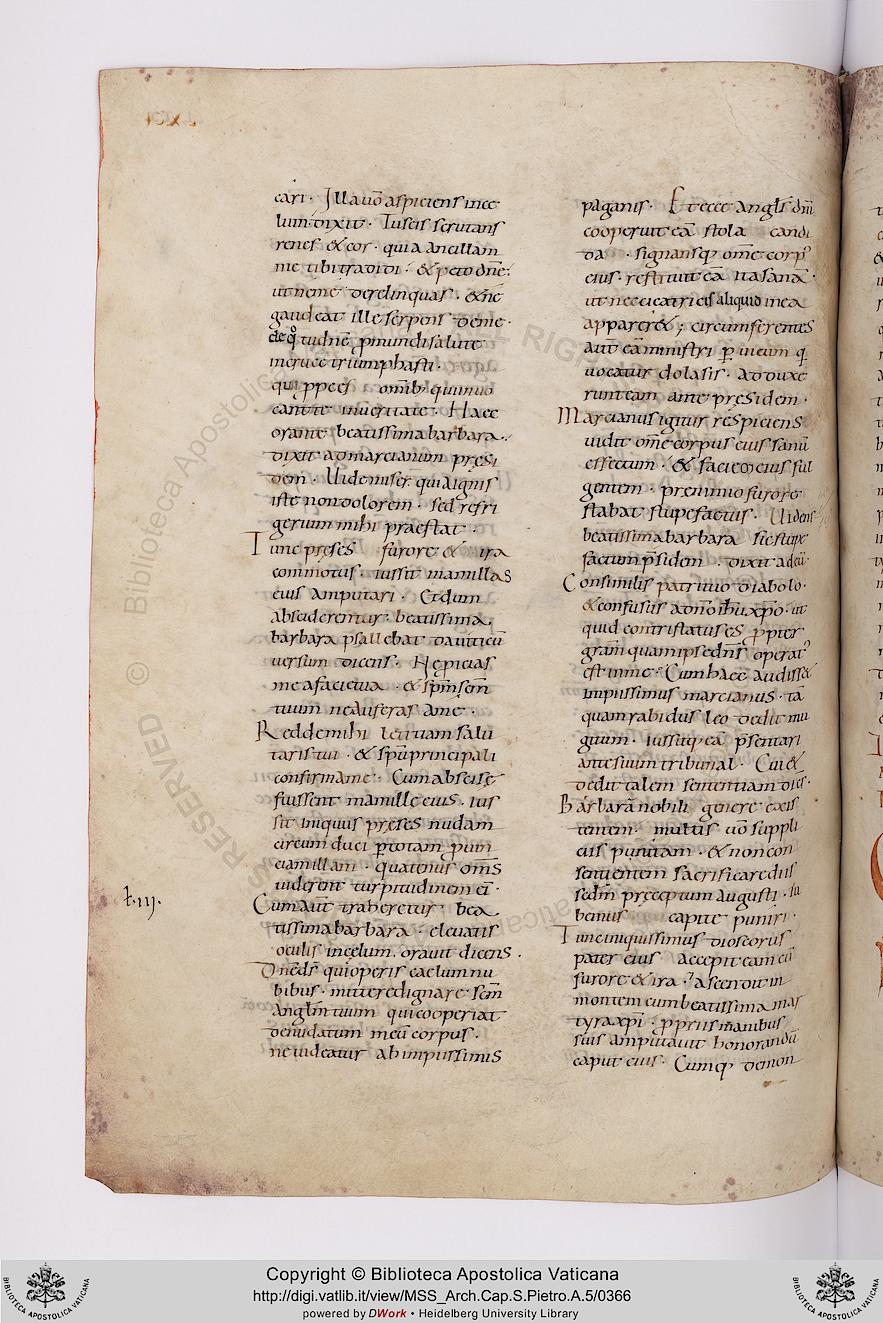 cari. Illa uō aspiciens in ce
lum dixit. Tu scis scrutans
renes & cor. quia ancillam
me tibi tradidi. & peto dn̄e.
ut ne me derelinquas. & ne
gaudeat ille serpens de me.
de q̊ tu dn̄e ꝓ mundi salute
in cruce triumphasti.
orante beatissima barbara.
dixit ad marcianum presi
dem. Uide miser qui a ignis
iste non dolorem. sed refri
gerium mihi praestat.
Tunc preses furore & ira
commotus. iussit mamillas
eius amputari. Et dum
absciderentur beatissima
barbara psallebat dauiticū
uersum dicens. Ne proicias
me a facie tua. & sp̄m sc̄m
tuum ne auferas a me.
Redde mihi letitiam salu
taris tui. & spū principali
confirma me. Cum abscise
fuissent mamille eius. ius
sit iniquus preses nudam
circumduci ꝑ totam ꝓuin
ciam illam. quatenus om̄s
uiderent turpitudinem ei.
Cum aūt traheretur bea
tissima barbara. eleuatis
oculis in celum. orauit dicens.
Dn̄e ds̄ qui operis caelum nu
bibus. mittere dignare sc̄m
Angl̄m tuum qui cooperiat
denudatum meū corpus.
ne uideatur ab impiissimis
ł. iij.
paganis. Et ecce angl̄s dn̄i
cooperuit eā stola candi
da. signansq; om̄e corp'
eius. restituit eā ita sanā.
ut nec cicatricis aliquid in ea
apparer&; circumferentes
aūt eā ministri ꝑ uicum q̄
uocatur dolasis. adduxe
runt eam ante presidem.
Marcianus igitur respiciens
uidit om̄e corpus eius sanū
effectum. & faciem eius ful
gentem. pre nimio furore
stabat stupefactus. Uidens
beatissima barbara sic stupe
factum p̄sidem. dixit ad eū.
Consimilis patri tuo diabolo.
& confusus a dn̄o ih̄u xp̄o. ut
quid contristatus es ꝓpter
gr̄am quam ipse dn̄s operat'
est in me. Cum haec audiss&
impiissimus marcianus. tā
quam rabidus leo dedit mu
gitum. iussitq; eā p̄sentari
ante suum tribunal. Cui &
dedit talem sententiam dices.
Barbarā nobili genere exis
tentem. multis uō suppli
ciis punitam. & non con
sentientem sacrificare diis
sedm̄ preceptum augusti. iu
bemus capite puniri.
Tunc iniquissimus dioscorus
pater eius accepit eam cū
furore & ira. ascendit in
montem cum beatissima mar
tyra xp̄i. ꝓpriis manibus
suis amputauit honorandū
caput eius. Cumq; de mon
Copyright © Biblioteca Apostolica Vaticana
http://digi.vatlib.it/view/MSS_Arch.Cap.S.Pietro.A.5/0366
powered by DWork • Heidelberg University Library